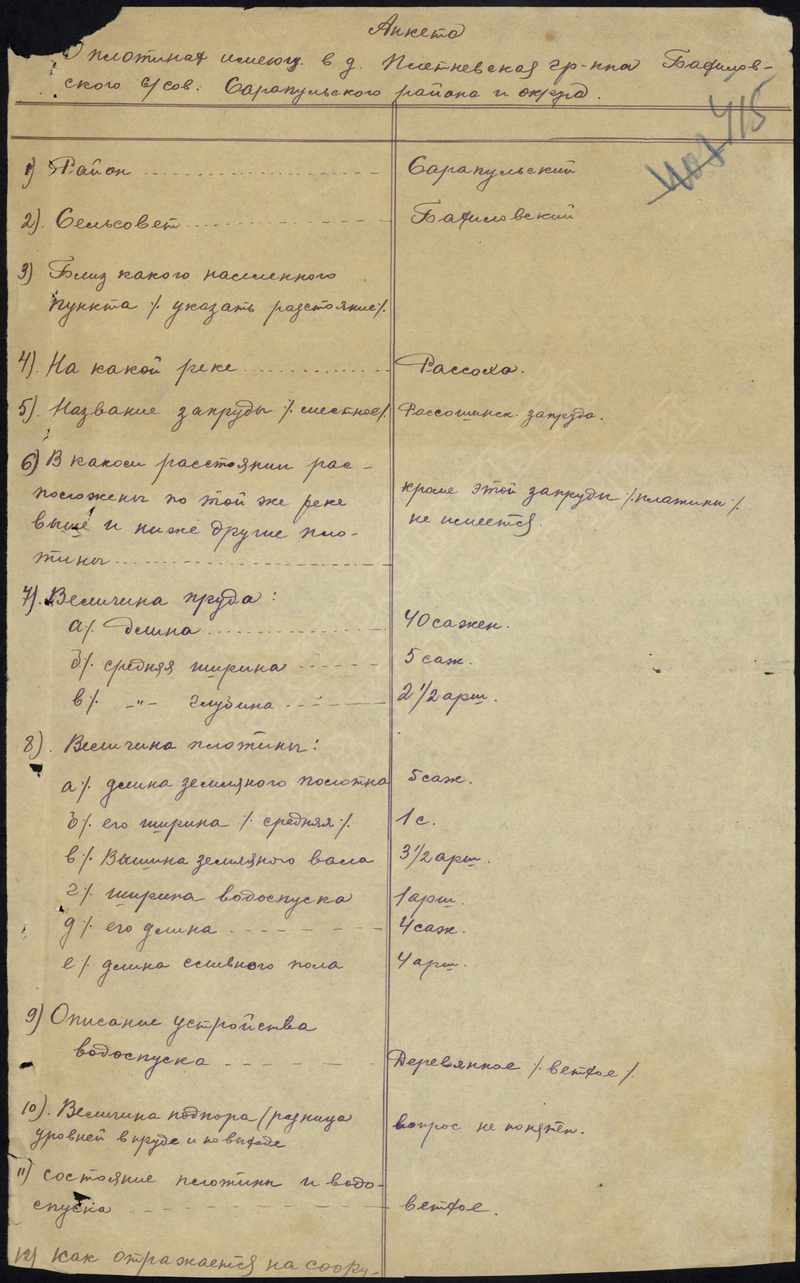 Анкета
О плотинах имеющ. в д. Плетневская гр-нна Бафилов-
ского с/сов. Сарапульского района и округа.
408 415
1) Район Сарапульский
2) Сельсовет Бафиловский
3) Близ какого населенного
пункта /. указать разстояние/.
4) На какой реке Рассоха.
5). Название запруды /. местное/. Рассошинск. запруда.
6) В каком расстоянии рас-
положены по той же реке
выше и ниже другие пло-
тины
кроме этой запруды /.платины/.
не имеется.
7). Величина пруда:
а/. Длина 40 сажен.
б/. средняя ширина 5 саж.
в/. -"- глубина 2 1/2 арш.
8). Величина плотины:
а/. длина земляного полотна 5 саж.
б/. его ширина /. средняя/. 1 с.
в/. Вышина земляного вала 3 1/2 арш.
г/. ширина водоспуска 1 арш.
д/. его длина 4 саж.
е/. длина сливного пола 4 арш.
9) Описание устройства
водоспуска Деревянное /. ветхое/.
10). Величина подпора (разница
уровней в пруде и по выходе
вопрос не понятен.
11) состояние плотины и водо-
спуска ветхое.
12) как отражается на соору-